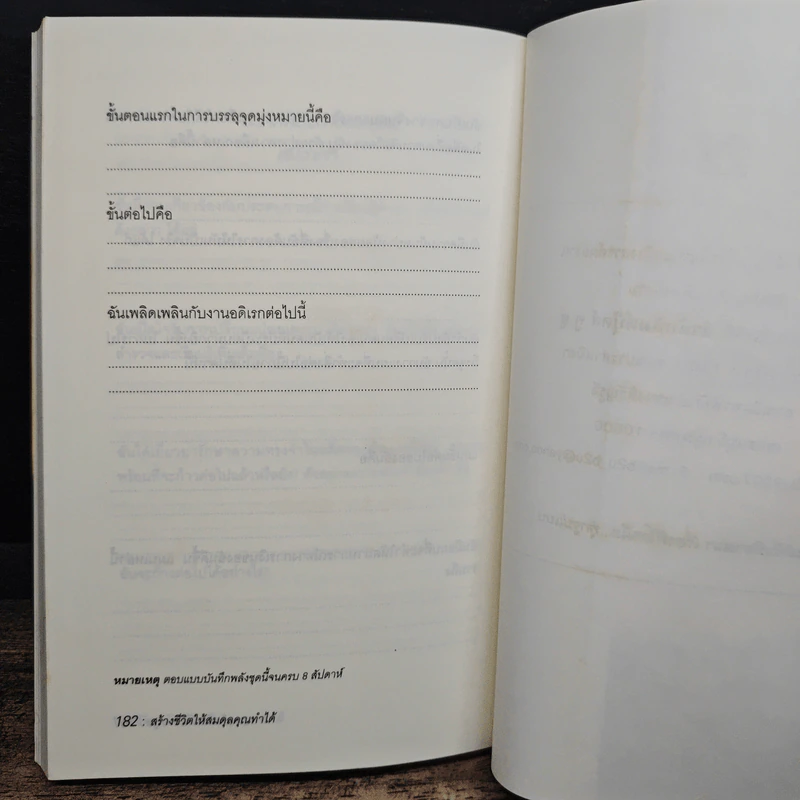 ขั้นตอนแรกในการบรรลุจุดมุ่งหมายนี้คือ
ขั้นต่อไปคือ
ฉันเพลิดเพลินกับงานอดิเรกต่อไปนี้
หมายเหตุ ตอบแบบบันทึกพลังชุดนี้จนครบ 8 สัปดาห์
182 : สร้างชีวิตให้สมดุลคุณทำได้